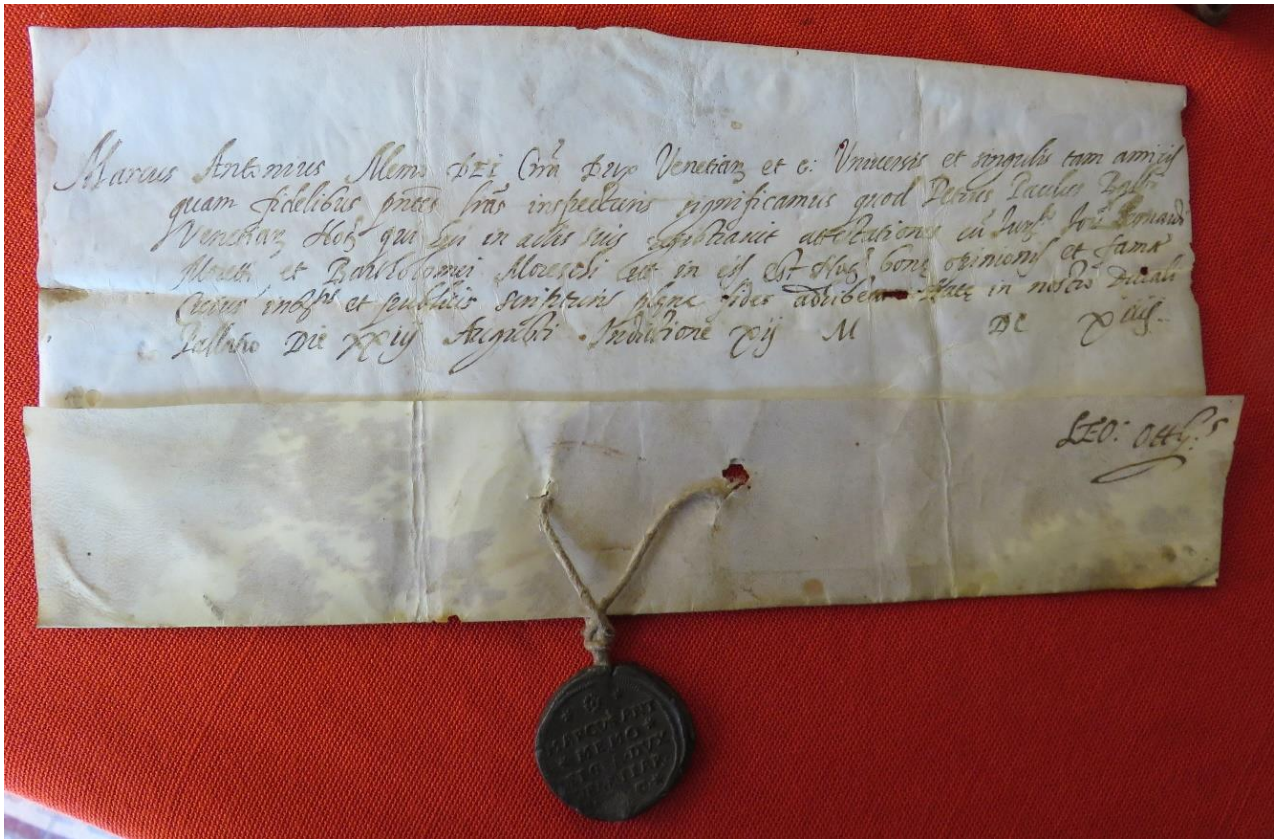 Marcus Antonius Memo DEI Grã Dux Venetiarz et c: Universis et singulis tam amicis
quam fidelibus pñtes lrãs inspecturis significamus quod Petrus Paulus
Venetiarz Notz qui in actis suis attestationes cũ
et Bartholomei Moreschi in est Notz bonę opinionis et famę
Cuius et publicis scripturis plena fides adhibetur Datę in nostro Ducali
Pallatio Die XXiij Augusti Indictione Xij M DC Xiiij
LEO: Otth:s
MARCVS ANT
MEMO
DEI G DVX
VENETIAR